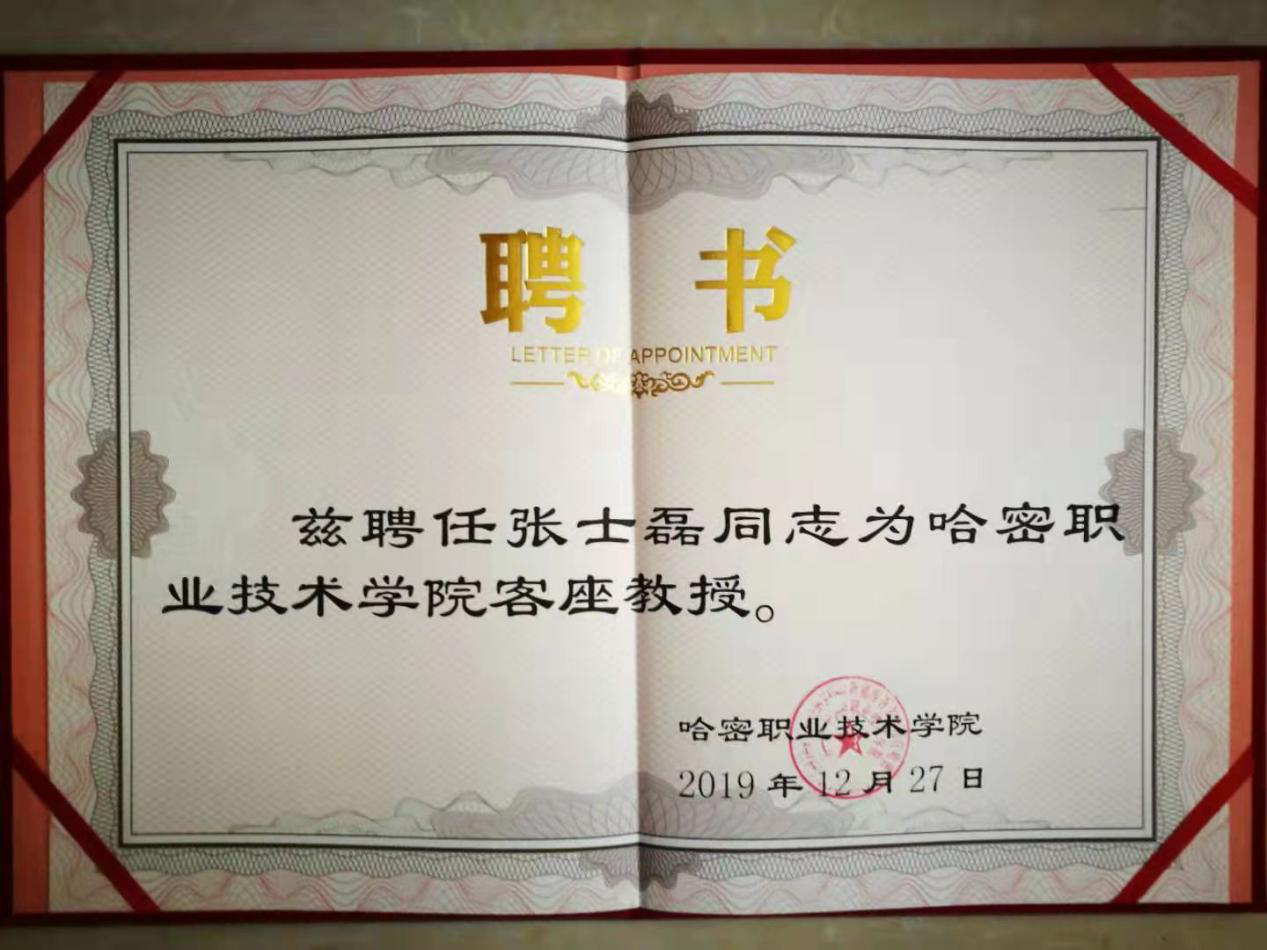 聘 书
LETTER OF APPOINTMENT
兹聘任张士磊同志为哈密职
业技术学院客座教授。
哈密职业技术学院
2019 年 12 月 27 日